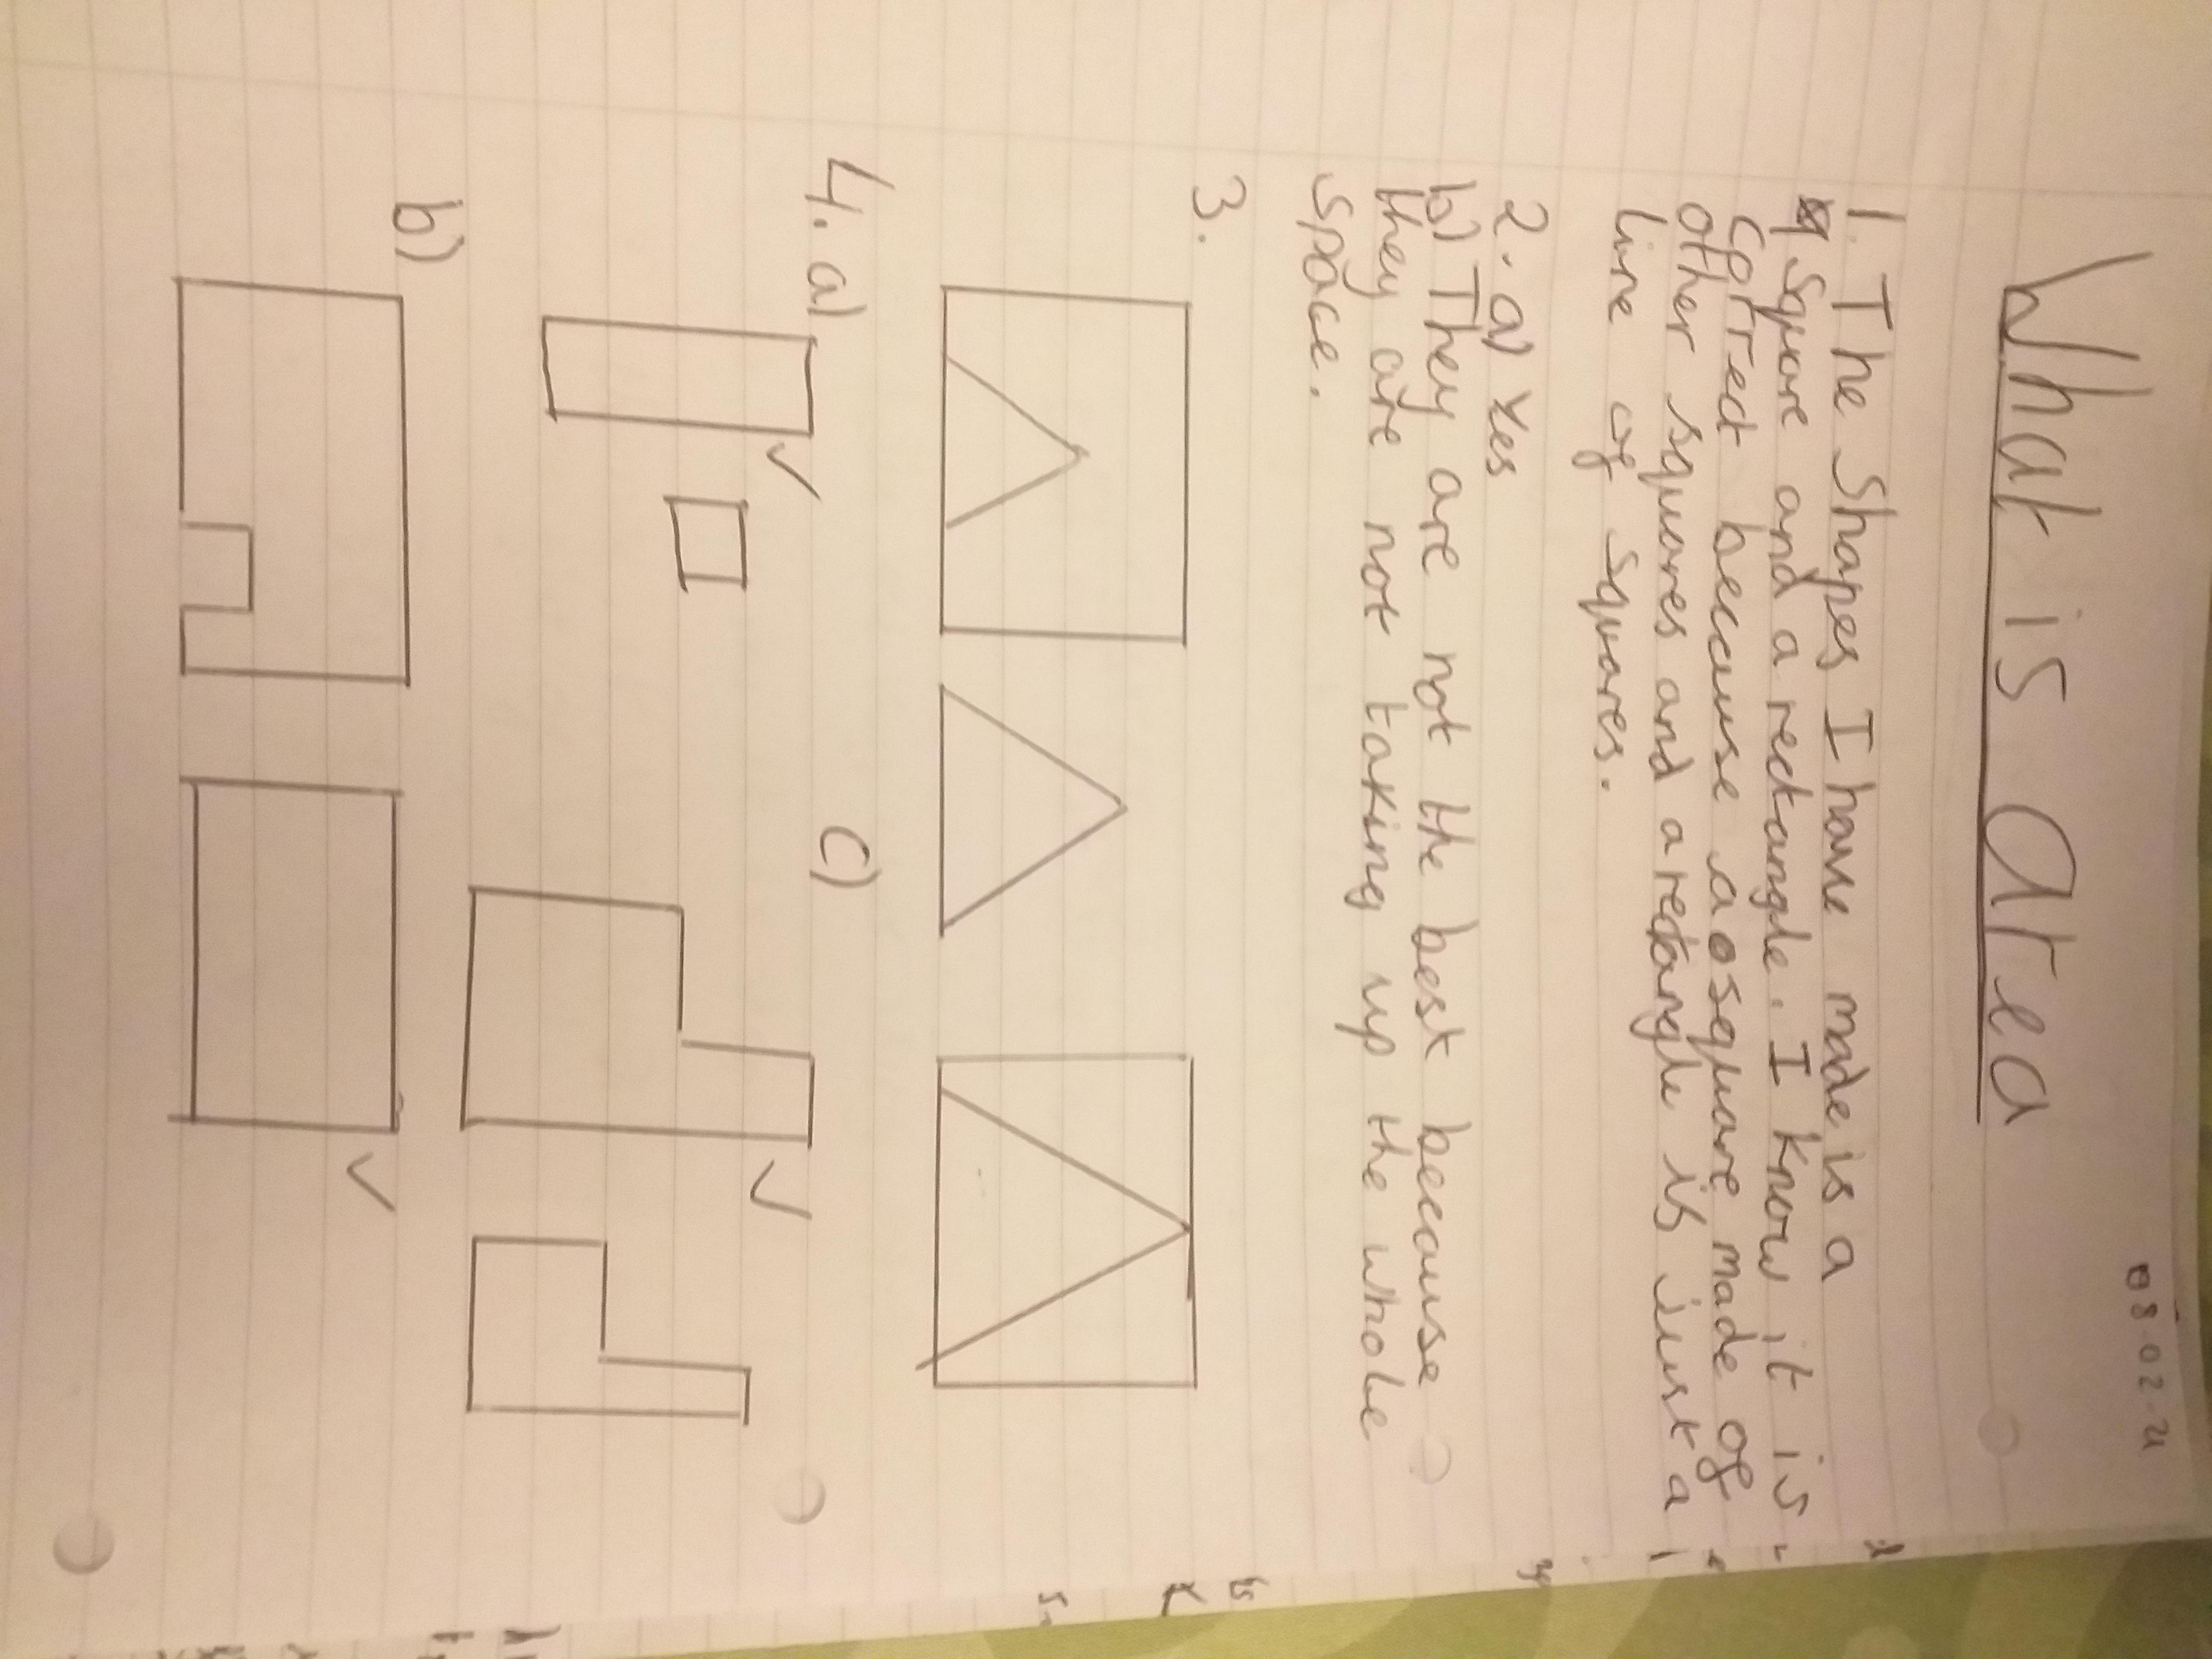 08.02.21
What is area
1. The shapes I have made is a
square and a rectangle. I know it is
correct because a square made of
other squares and a rectangle is just a
line of squares.
2. a) Yes
b) They are not the best because
they are not taking up the whole
space.
3.
4. a)
c)
b)